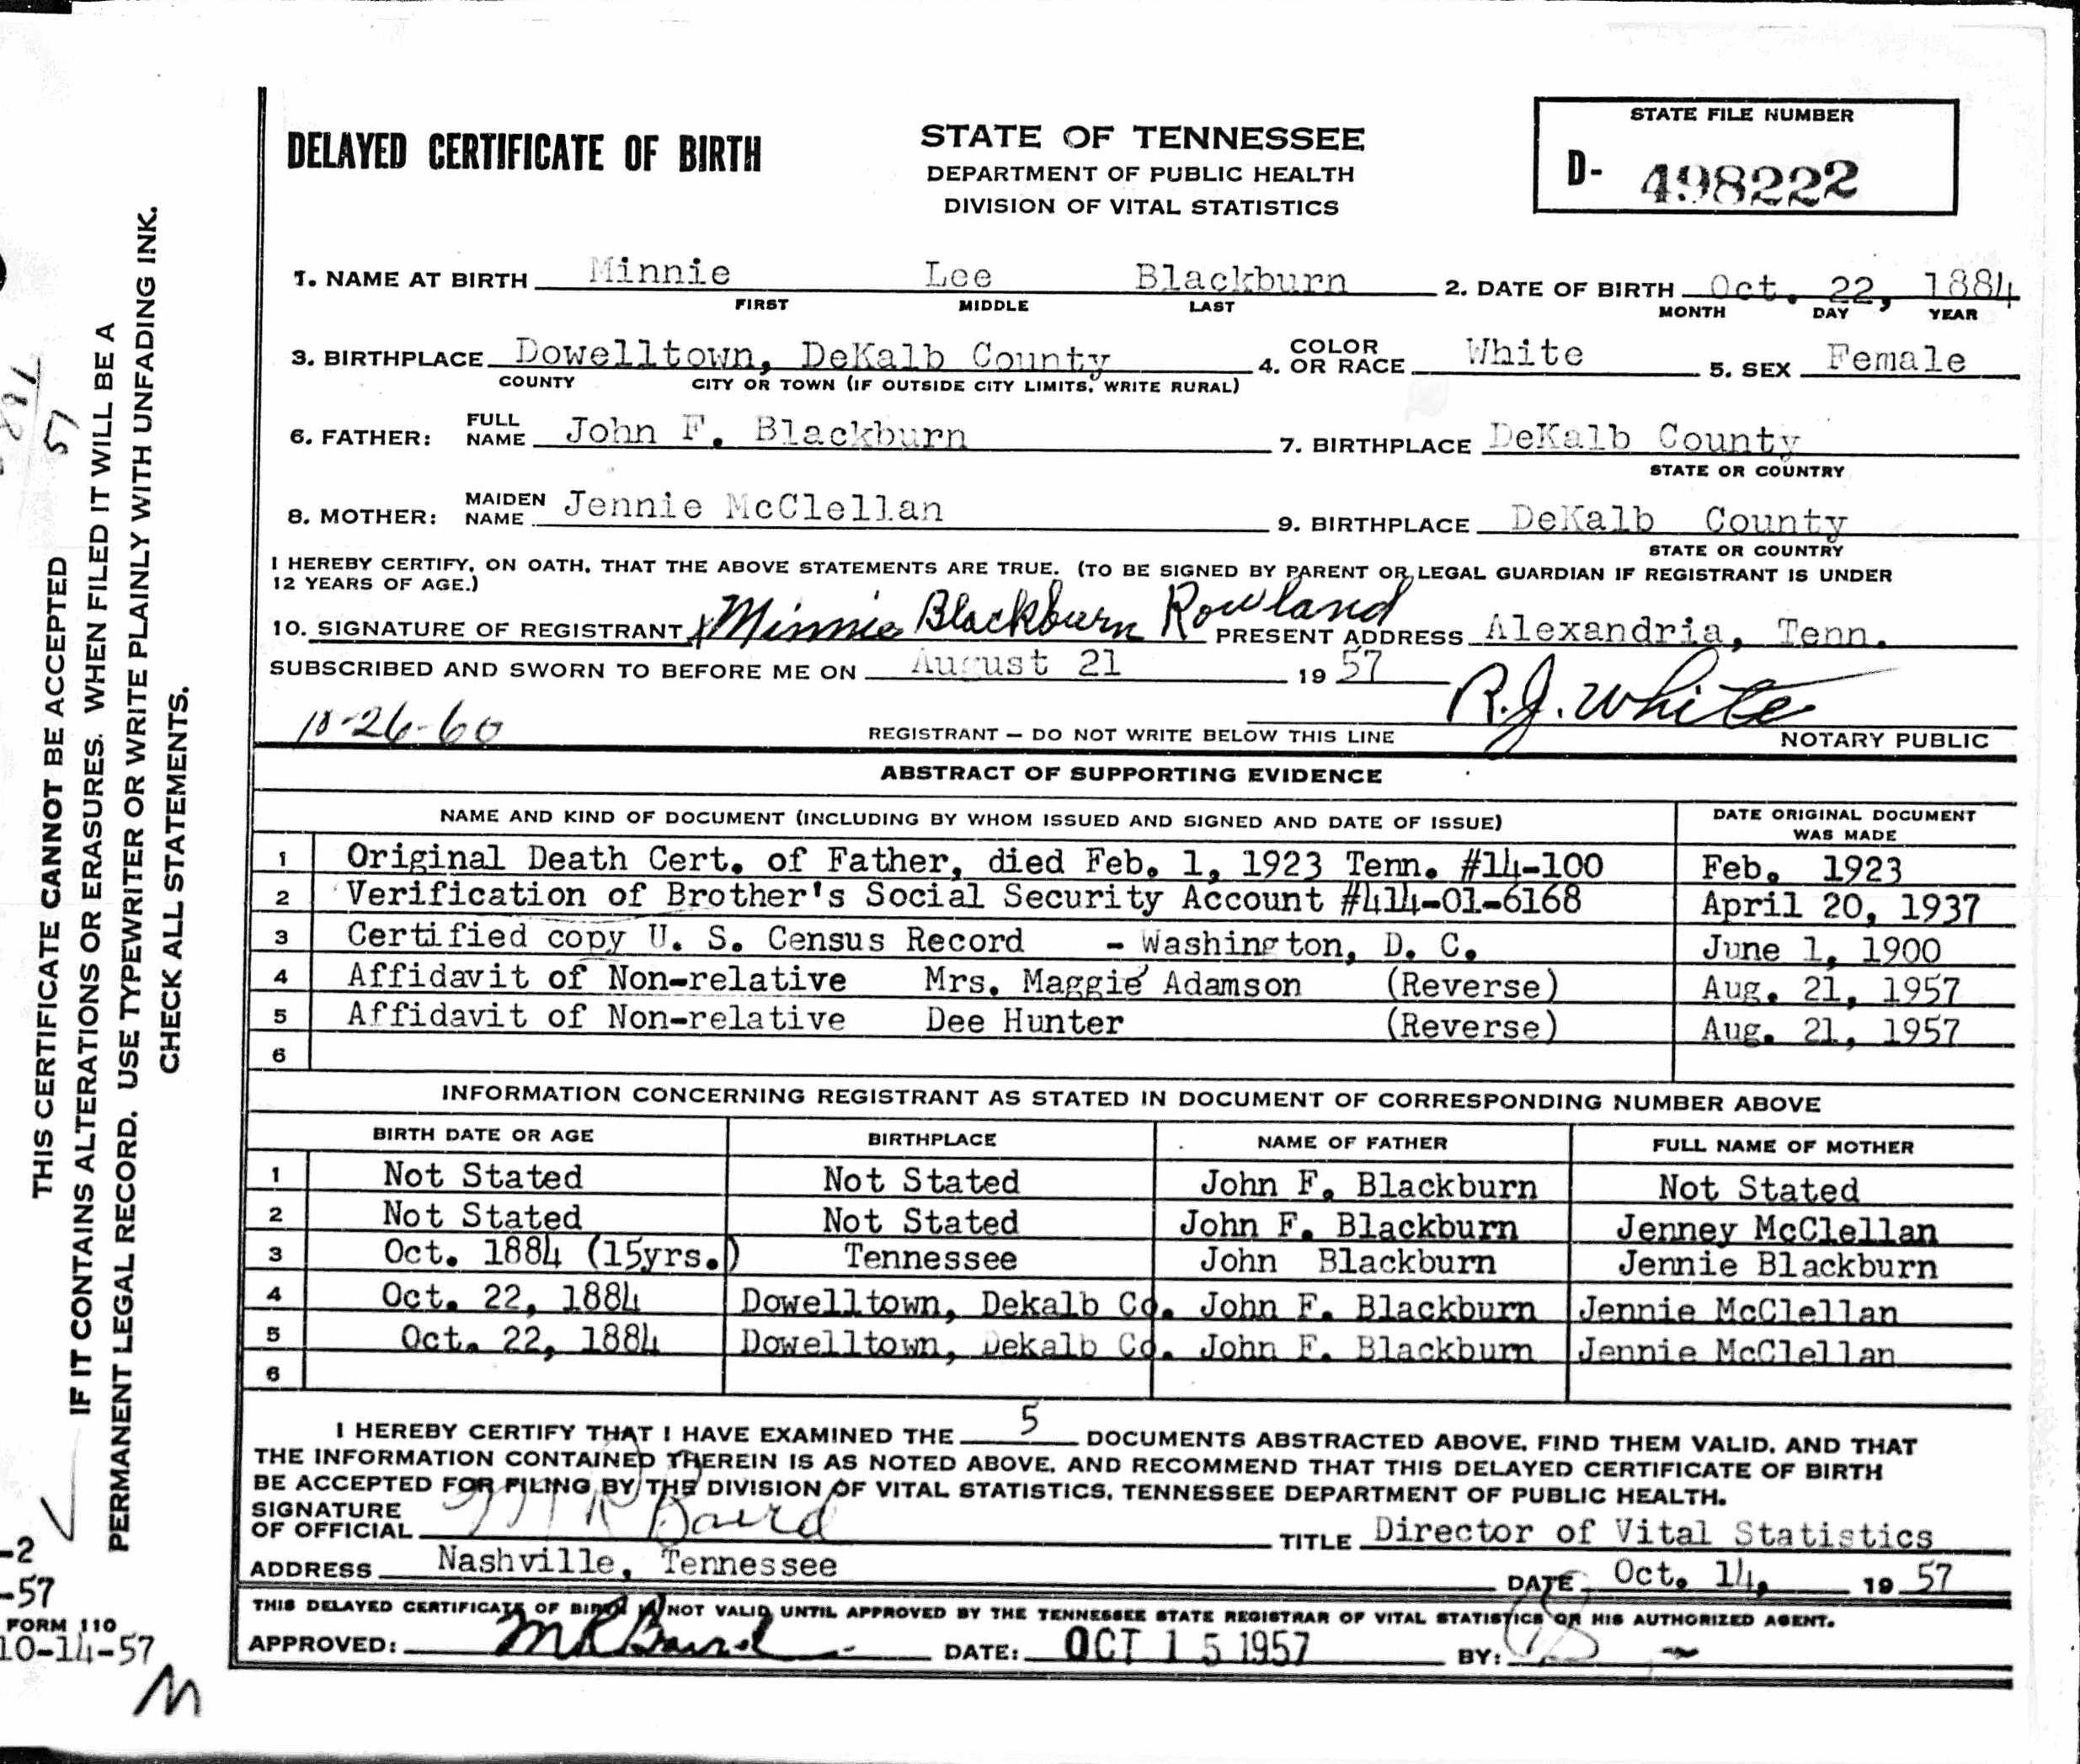 DELAYED CERTIFICATE OF BIRTH
STATE OF TENNESSEE
DEPARTMENT OF PUBLIC HEALTH
DIVISION OF VITAL STATISTICS
STATE FILE NUMBER
D- 498222
1. NAME AT BIRTH Minnie Lee Blackburn 2. DATE OF BIRTH Oct. 22, 1884
FIRST MIDDLE LAST MONTH DAY YEAR
3. BIRTHPLACE Dowelltown, DeKalb County 4. COLOR OR RACE White 5. SEX Female
COUNTY CITY OR TOWN (IF OUTSIDE CITY LIMITS, WRITE RURAL)
6. FATHER: FULL NAME John F. Blackburn 7. BIRTHPLACE DeKalb County
STATE OR COUNTRY
8. MOTHER: MAIDEN NAME Jennie McClellan 9. BIRTHPLACE DeKalb County
STATE OR COUNTRY
I HEREBY CERTIFY, ON OATH, THAT THE ABOVE STATEMENTS ARE TRUE. (TO BE SIGNED BY PARENT OR LEGAL GUARDIAN IF REGISTRANT IS UNDER
12 YEARS OF AGE.)
10. SIGNATURE OF REGISTRANT x Minnie Blackburn Rowland PRESENT ADDRESS Alexandria, Tenn.
SUBSCRIBED AND SWORN TO BEFORE ME ON August 21 19 57
R.J. White
10-26-60
REGISTRANT — DO NOT WRITE BELOW THIS LINE NOTARY PUBLIC
ABSTRACT OF SUPPORTING EVIDENCE
NAME AND KIND OF DOCUMENT (INCLUDING BY WHOM ISSUED AND SIGNED AND DATE OF ISSUE) DATE ORIGINAL DOCUMENT WAS MADE
1 Original Death Cert. of Father, died Feb. 1, 1923 Tenn. #14-100 Feb. 1923
2 Verification of Brother's Social Security Account #414-01-6168 April 20, 1937
3 Certified copy U. S. Census Record - Washington, D. C. June 1, 1900
4 Affidavit of Non-relative Mrs. Maggie Adamson (Reverse) Aug. 21, 1957
5 Affidavit of Non-relative Dee Hunter (Reverse) Aug. 21, 1957
6
INFORMATION CONCERNING REGISTRANT AS STATED IN DOCUMENT OF CORRESPONDING NUMBER ABOVE
BIRTH DATE OR AGE BIRTHPLACE NAME OF FATHER FULL NAME OF MOTHER
1 Not Stated Not Stated John F. Blackburn Not Stated
2 Not Stated Not Stated John F. Blackburn Jenney McClellan
3 Oct. 1884 (15yrs.) Tennessee John Blackburn Jennie Blackburn
4 Oct. 22, 1884 Dowelltown, Dekalb Co. John F. Blackburn Jennie McClellan
5 Oct. 22, 1884 Dowelltown, Dekalb Co. John F. Blackburn Jennie McClellan
6
I HEREBY CERTIFY THAT I HAVE EXAMINED THE 5 DOCUMENTS ABSTRACTED ABOVE, FIND THEM VALID, AND THAT
THE INFORMATION CONTAINED THEREIN IS AS NOTED ABOVE, AND RECOMMEND THAT THIS DELAYED CERTIFICATE OF BIRTH
BE ACCEPTED FOR FILING BY THE DIVISION OF VITAL STATISTICS, TENNESSEE DEPARTMENT OF PUBLIC HEALTH.
SIGNATURE OF OFFICIAL M R Baird TITLE Director of Vital Statistics
ADDRESS Nashville, Tennessee DATE Oct. 14, 19 57
THIS DELAYED CERTIFICATE OF BIRTH IS NOT VALID UNTIL APPROVED BY THE TENNESSEE STATE REGISTRAR OF VITAL STATISTICS OR HIS AUTHORIZED AGENT.
APPROVED: M R Baird DATE: OCT 15 1957 BY:
THIS CERTIFICATE CANNOT BE ACCEPTED
IF IT CONTAINS ALTERATIONS OR ERASURES. WHEN FILED IT WILL BE A
PERMANENT LEGAL RECORD. USE TYPEWRITER OR WRITE PLAINLY WITH UNFADING INK.
CHECK ALL STATEMENTS.
57
-2
-57
FORM 110
10-14-57
M